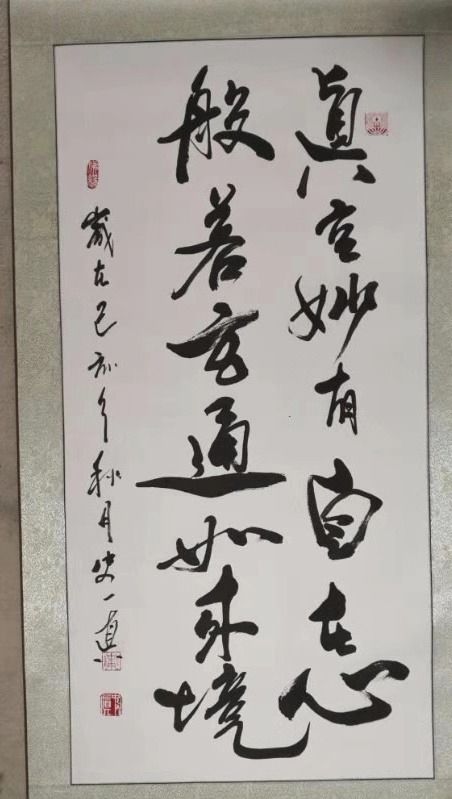 真空妙有自在心
般若玄通如来境
岁在己亥年秋月史一直